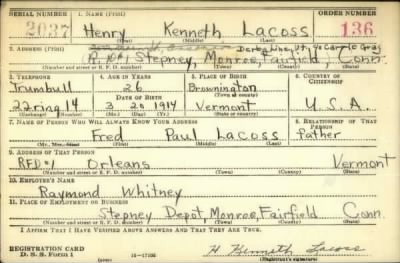 SERIAL NUMBER 1. NAME (Print) ORDER NUMBER
2037 Henry Kenneth LaCoss 136
(First) (Middle) (Last)
2. ADDRESS (Print)
Derby Line, Vt.
R. D#1, Stepney, Monroe, Fairfield, Conn.
(Number and street or R. F. D. number) (Town) (County) (State)
3. TELEPHONE 4. AGE IN YEARS 5. PLACE OF BIRTH 6. COUNTRY OF CITIZENSHIP
Trumbull 26 Brownington
DATE OF BIRTH (Town or county)
22 ring 14 3 20 1914 Vermont U. S. A.
(Exchange) (Number) (Mo.) (Day) (Yr.) (State or country)
7. NAME OF PERSON WHO WILL ALWAYS KNOW YOUR ADDRESS 8. RELATIONSHIP OF THAT PERSON
Fred Paul LaCoss father
(First) (Middle) (Last)
9. ADDRESS OF THAT PERSON
RFD#1 Orleans Vermont
(Number and street or R. F. D. number) (Town) (County) (State)
10. EMPLOYER'S NAME
Raymond Whitney
11. PLACE OF EMPLOYMENT OR BUSINESS
Stepney Depot, Monroe, Fairfield Conn.
(Number and street or R. F. D. number) (Town) (County) (State)
I AFFIRM THAT I HAVE VERIFIED ABOVE ANSWERS AND THAT THEY ARE TRUE.
REGISTRATION CARD
D. S. S. Form 1 H Kenneth Lacoss
(Registrant's signature)